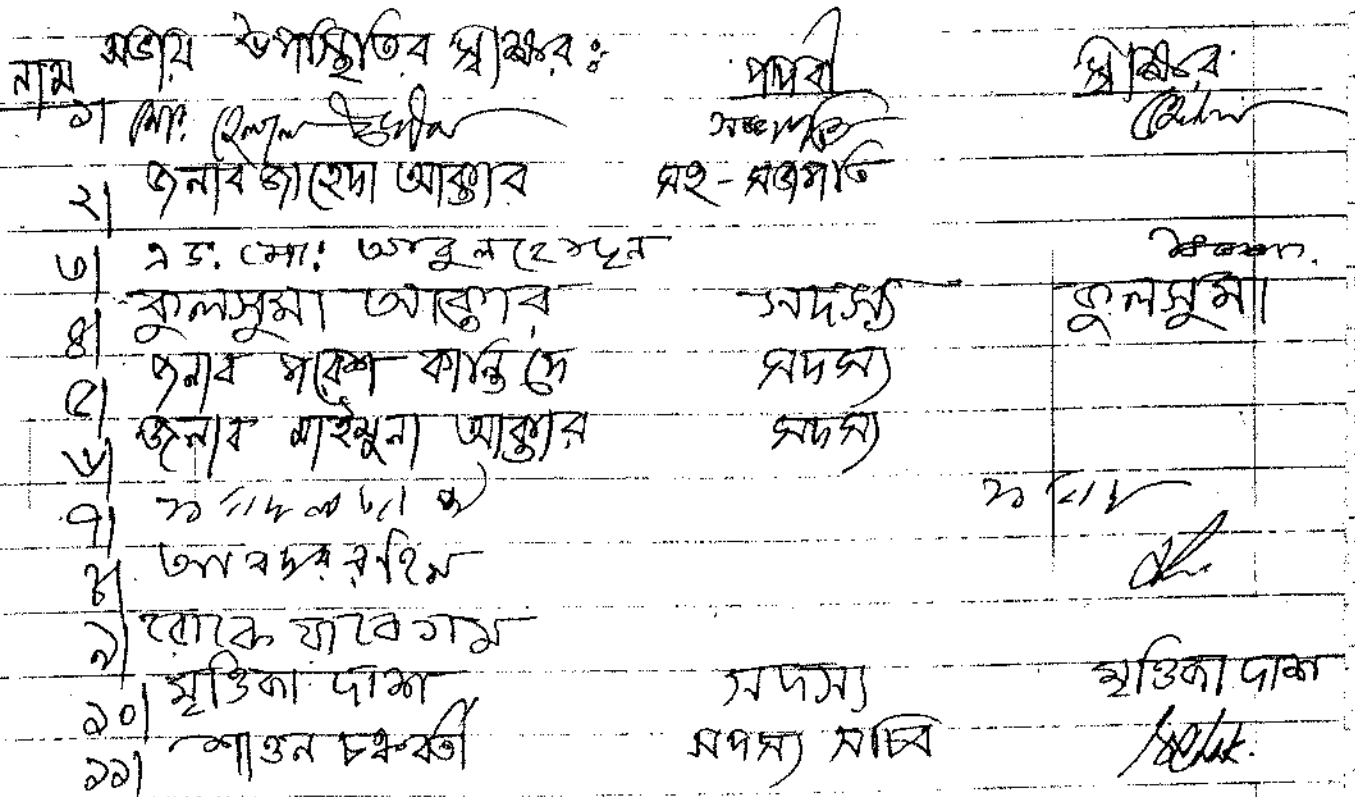 সভায় উপস্থিতির স্বাক্ষর :
নাম পদবী স্বাক্ষর
১| মো: হেলাল উদ্দীন সভাপতি
২| জনাব জাহেদা আক্তার সহ-সভাপতি
৩| এড. মো: আবুল হোসেন
৪| কুলসুমা আক্তার সদস্য কুলসুমা
৫| জনাব পরেশ কান্তি দে সদস্য
৬| জনাব মাইমুনা আক্তার সদস্য
৭|
৮| আবদুর রহিম
৯| রোকেয়া বেগম
১০| মৃত্তিকা দাশ সদস্য মৃত্তিকা দাশ
১১| শাওন চক্রবর্তী সদস্য সচিব